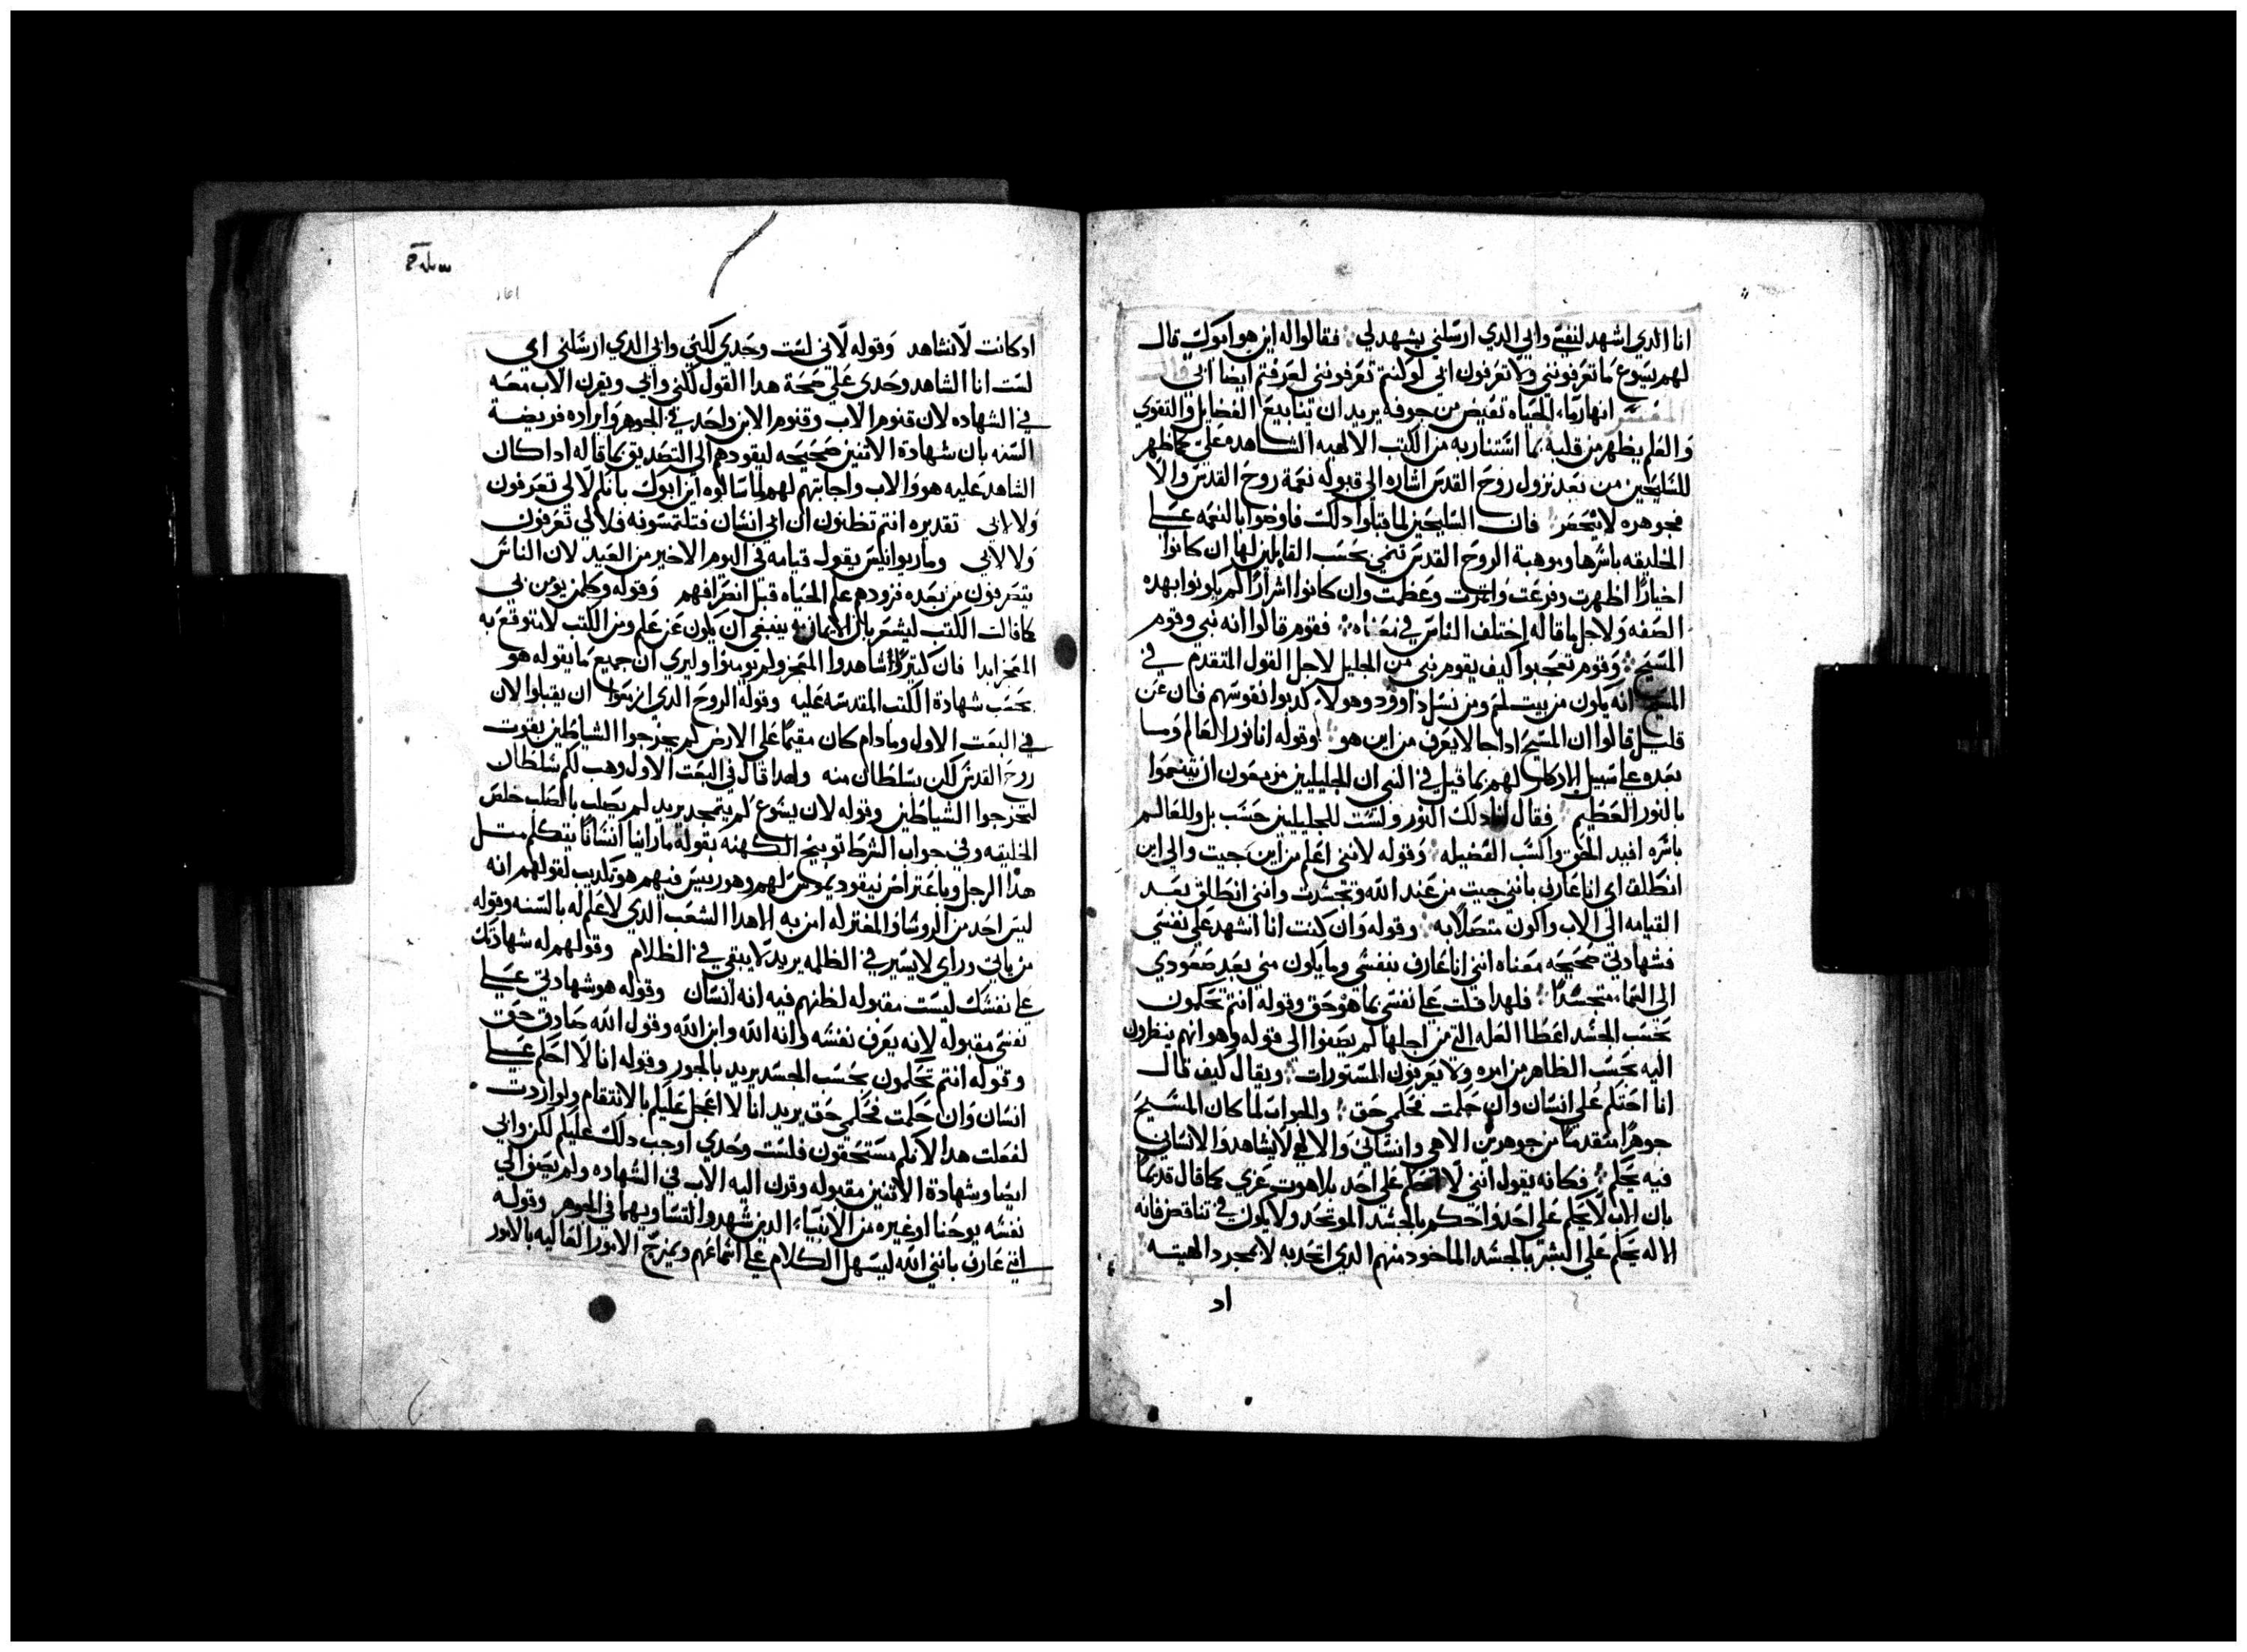 انا الدي اشهد لنفسي وابي الدي ارسلني يشهد لي فقالوا له اين هو ابوك قال
لهم يسوع ما تعرفونني ولا تعرفون ابي لو كنتم تعرفونني لعرفتم ايضا ابي قال
المفسر انهار ماء الحياه تفيض من جوفه يريد ان ينابيع الفضايل والتقوي
والعلم يظهر من قلبه بما استنار به من الكتب الالهيه الشاهده علي كما ظهر
للسليحين من بعد نزول روح القدس اشاره الي قبوله نعمة روح القدس والا
فجوهره لا ينحصر فان السليحين لما قبلوا دلك فاوضوا بالنعمه علي
الخليقه باسرها وموهبة الروح القدس تنمي بحسب القابلين لها ان كانوا
اخيارا اظهرت وفرعت واثمرت وعظمت وان كانوا اشرارا لم يلونوا بهده
الصفه ولاجل ما قاله اختلف الناس في معناه فقوم قالوا انه نبي وقوم
المسيح وقوم تعجبوا كيف يقوم نبي من الجليل لاجل القول المتقدم في
المسيح انه يكون من بيت لحم ومن نسل داوود وهولاء كدبوا نفوسهم فان عن
قليل قالوا ان المسيح ادا جا لا يعرف من اين هو وقوله انا نور العالم وسا
بعده علي سبيل الادكار لهم بما قيل في النبي ان الجليليين مزمعون ان يتنعموا
بالنور العظيم فقال انا دلك النور ولست للجليليين حسب بل وللعالم
باسره افيد الحق واكسب الفضيله وقوله لانني اعلم من اين جيت والي اين
انطلق اي انا عارف بانني جيت من عند الله وتجسدت وانني انطلق بعد
القيامه الي الاب واكون متصلا به وقوله وان كنت انا اشهد علي نفسي
فشهادتي صحيحه معناه انني انا عارف بنفسي وما يكون مني بعد صعودي
الي السماء متجسدا فلهدا قلت علي نفسي بما هو حق وقوله انتم تحكمون
بحسب الجسد اعطا العله التي من اجلها لم يصغوا الي قوله وهو انهم ينظرون
اليه بحسب الظاهر من امره ولا يعرفون المستورات ويقال كيف قال
انا احكم علي انسان وان حكمت فحكمي حق والجواب لما كان المسيح
جوهرا متقدما من جوهرين الاهي وانساني والالهي لا يشاهد والانساني
فيه يحكم فكانه يقول انني لا احكم علي احد بلاهوت عزي كما قال قديما
بان الاب لا يحكم علي احد واحكم بالجسد الموتحد ولا يكون في تناقض فانه
الاله يحكم علي البشر بالجسد الماخود منهم الدي اتحد به لا بمجرد الهيته
اد
ادكانت لا تشاهد وقوله لاني لست وحدي لكني وابي الدي ارسلني اي
لست انا الشاهد وحدي علي صحة هدا القول لكني وابي ويقرن الاب معه
في الشهاده لان قنوم الاب وقنوم الابن واحد في الجوهر وايراده فريضة
السنه بان شهادة الاتنين صحيحه ليقودهم الي التصديق بما قاله ادا كان
الشاهد عليه هو والاب واجابتهم لهم لما سالوه اين ابوك بانكم لا لي تعرفون
ولا لابي تقديره انتم تظنون ان ابي انسان فتلتمسونه فلا لي تعرفون
ولا لابي وماريوانيس يقول قيامه في اليوم الاخير من العيد لان الناس
يتصرفون من بعده فزودهم علم الحياه قبل انصرافهم وقوله وكلمن يومن بي
كما قالت الكتب ليشعر بان الايمان به ينبغي ان يكون عن علم ومن الكتب لا بتوقع به
المعجز ابدا فان كتيرا شاهدوا المعجز ولم يومنوا وليري ان جميع ما يقوله هو
بحسب شهادة الكتب المقدسه عليه وقوله الروح الدي ازمعوا ان يقبلوا لان
في البعت الاول ومادام كان مقيما علي الارض لم يخرجوا الشياطين بقوت
روح القدس لكن بسلطان منه ولهدا قال في البعت الاول وهب لكم سلطان
لتخرجوا الشياطين وقوله لان يسوع لم يتمجد يريد لم يصلب بالصلب خلص
الخليقه وفي جواب الشرط توبيخ الكهنه بقوله ما راينا انسانا يتكلم متل
هدا الرجل وباعتراض نيقوديموس لهم وهو رييس فيهم هو تكديب لقولهم انه
ليس احد من الروسا والمعتزله امن به الا هدا الشعب الدي لا علم له بالسنه وقوله
من ياتي وراي لا يسير في الظلمه يريد لا يبقي في الظلام وقولهم له شهادتك
علي نفسك ليست مقبوله لظنهم فيه انه انسان وقوله هو شهادتي علي
نفسي مقبوله لانه يعرف نفسه وانه الله وابن الله وقول الله صادق حق
وقوله انتم تحكمون بحسب الجسد يريد بالجور وقوله انا لا احكم علي
انسان وان حكمت فحكمي حق يريد انا لا اعجل عليكم بالانتقام ولو اردت
لفعلت هدا لانكم مستحقون فلست وحدي اوجب دلك عليكم لكن وابي
ايضا وشهادة الاتنين مقبوله وقرن اليه الاب في الشهاده ولم يضف الي
نفسه يوحنا او غيره من الانبياء الدين شهدوا لتساويهما في الجوهر وقوله
اني عارف بانني الله ليسهل الكلام علي اسماعهم ويمزج الامور العاليه بالامور